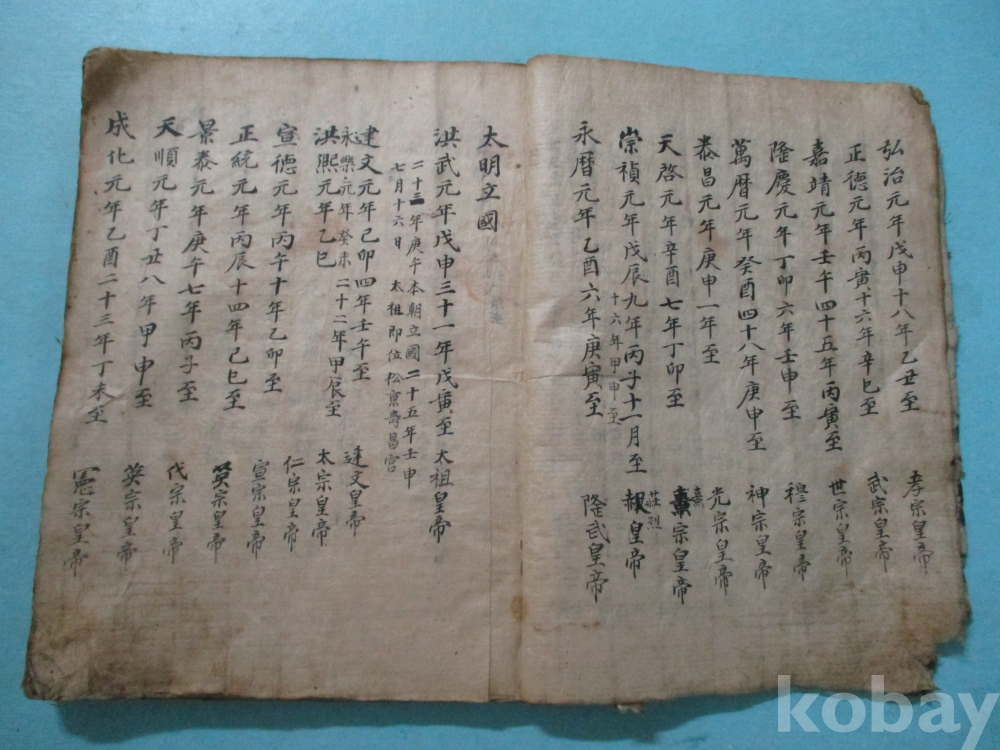 弘治元年戊申十八年乙丑至 孝宗皇帝
正德元年丙寅十六年辛巳至 武宗皇帝
嘉靖元年壬午四十五年丙寅至 世宗皇帝
隆慶元年丁卯六年壬申至 穆宗皇帝
萬曆元年癸酉四十八年庚申至 神宗皇帝
泰昌元年庚申一年至 光宗皇帝
天啓元年辛酉七年丁卯至 熹宗皇帝
熹
崇禎元年戊辰九年丙子十一月至 皇帝
十六年甲申至
莊烈
永曆元年乙酉六年庚寅至 隆武皇帝
太明立國
洪武元年戊申三十一年戊寅至 太祖皇帝
二十三年庚午本朝立國二十五年壬申
七月十六日 太祖即位松京壽昌宮
建文元年己卯四年壬午至 建文皇帝
永樂元年癸未二十二年甲辰至 太宗皇帝
洪熙元年乙巳 仁宗皇帝
宣德元年丙午十年乙卯至 宣宗皇帝
正統元年丙辰十四年己巳至 英宗皇帝
景泰元年庚午七年丙子至 代宗皇帝
天順元年丁丑八年甲申至 英宗皇帝
成化元年乙酉二十三年丁未至 憲宗皇帝
kobay